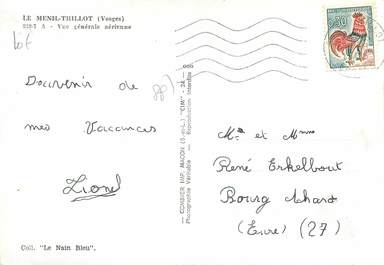 LE MENIL-THILLOT (Vosges)
A - Vue générale aérienne
lot
0,30
Souvenir de
mes Vacances
Lionel
COMBIER IMP. MACON (S.-et-L.) "CIM"
Photographie Véritable - Reproduction Interdite
Mr et Mme
René Erkelbout
Bourg Achard
(Eure) (27)
Coll. "Le Nain Bleu".